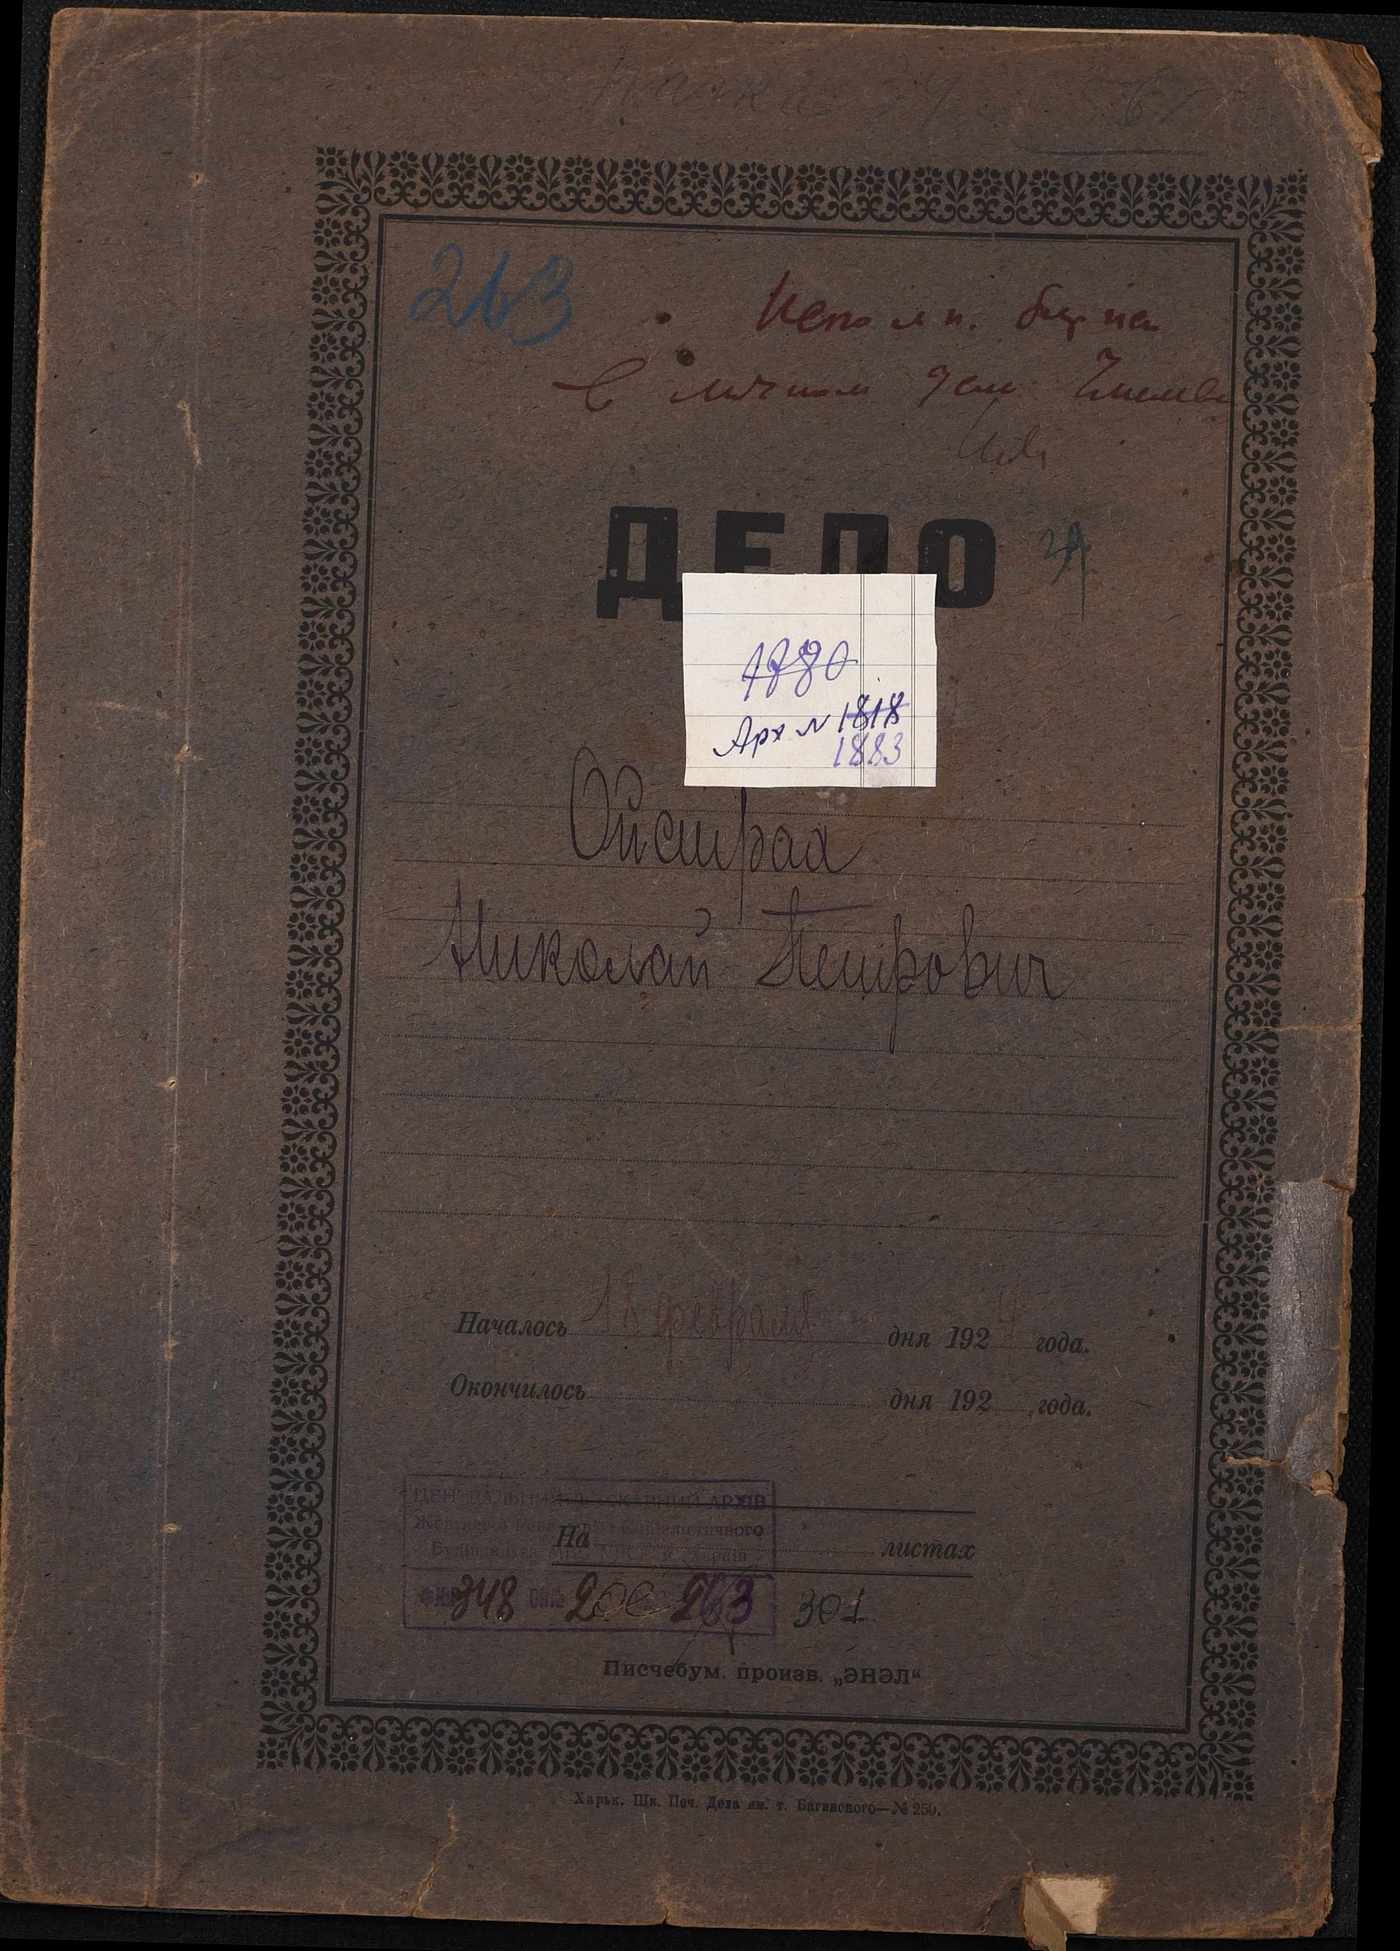 Папка
263
в личном деле
ДЕЛО
24
1780
Арх № 1818
1883
Ойстрах
Николай Петрович
Началось 18 февраля дня 1924 года.
Окончилось дня 192 года.
ЦЕНТРАЛЬНИЙ АРХІВ
На листах
348 200 263 301
Писчебум. произв. „ЭНЭЛ“
Харьк. Шк. Печ. Дела им. т. Багинского—№ 250.